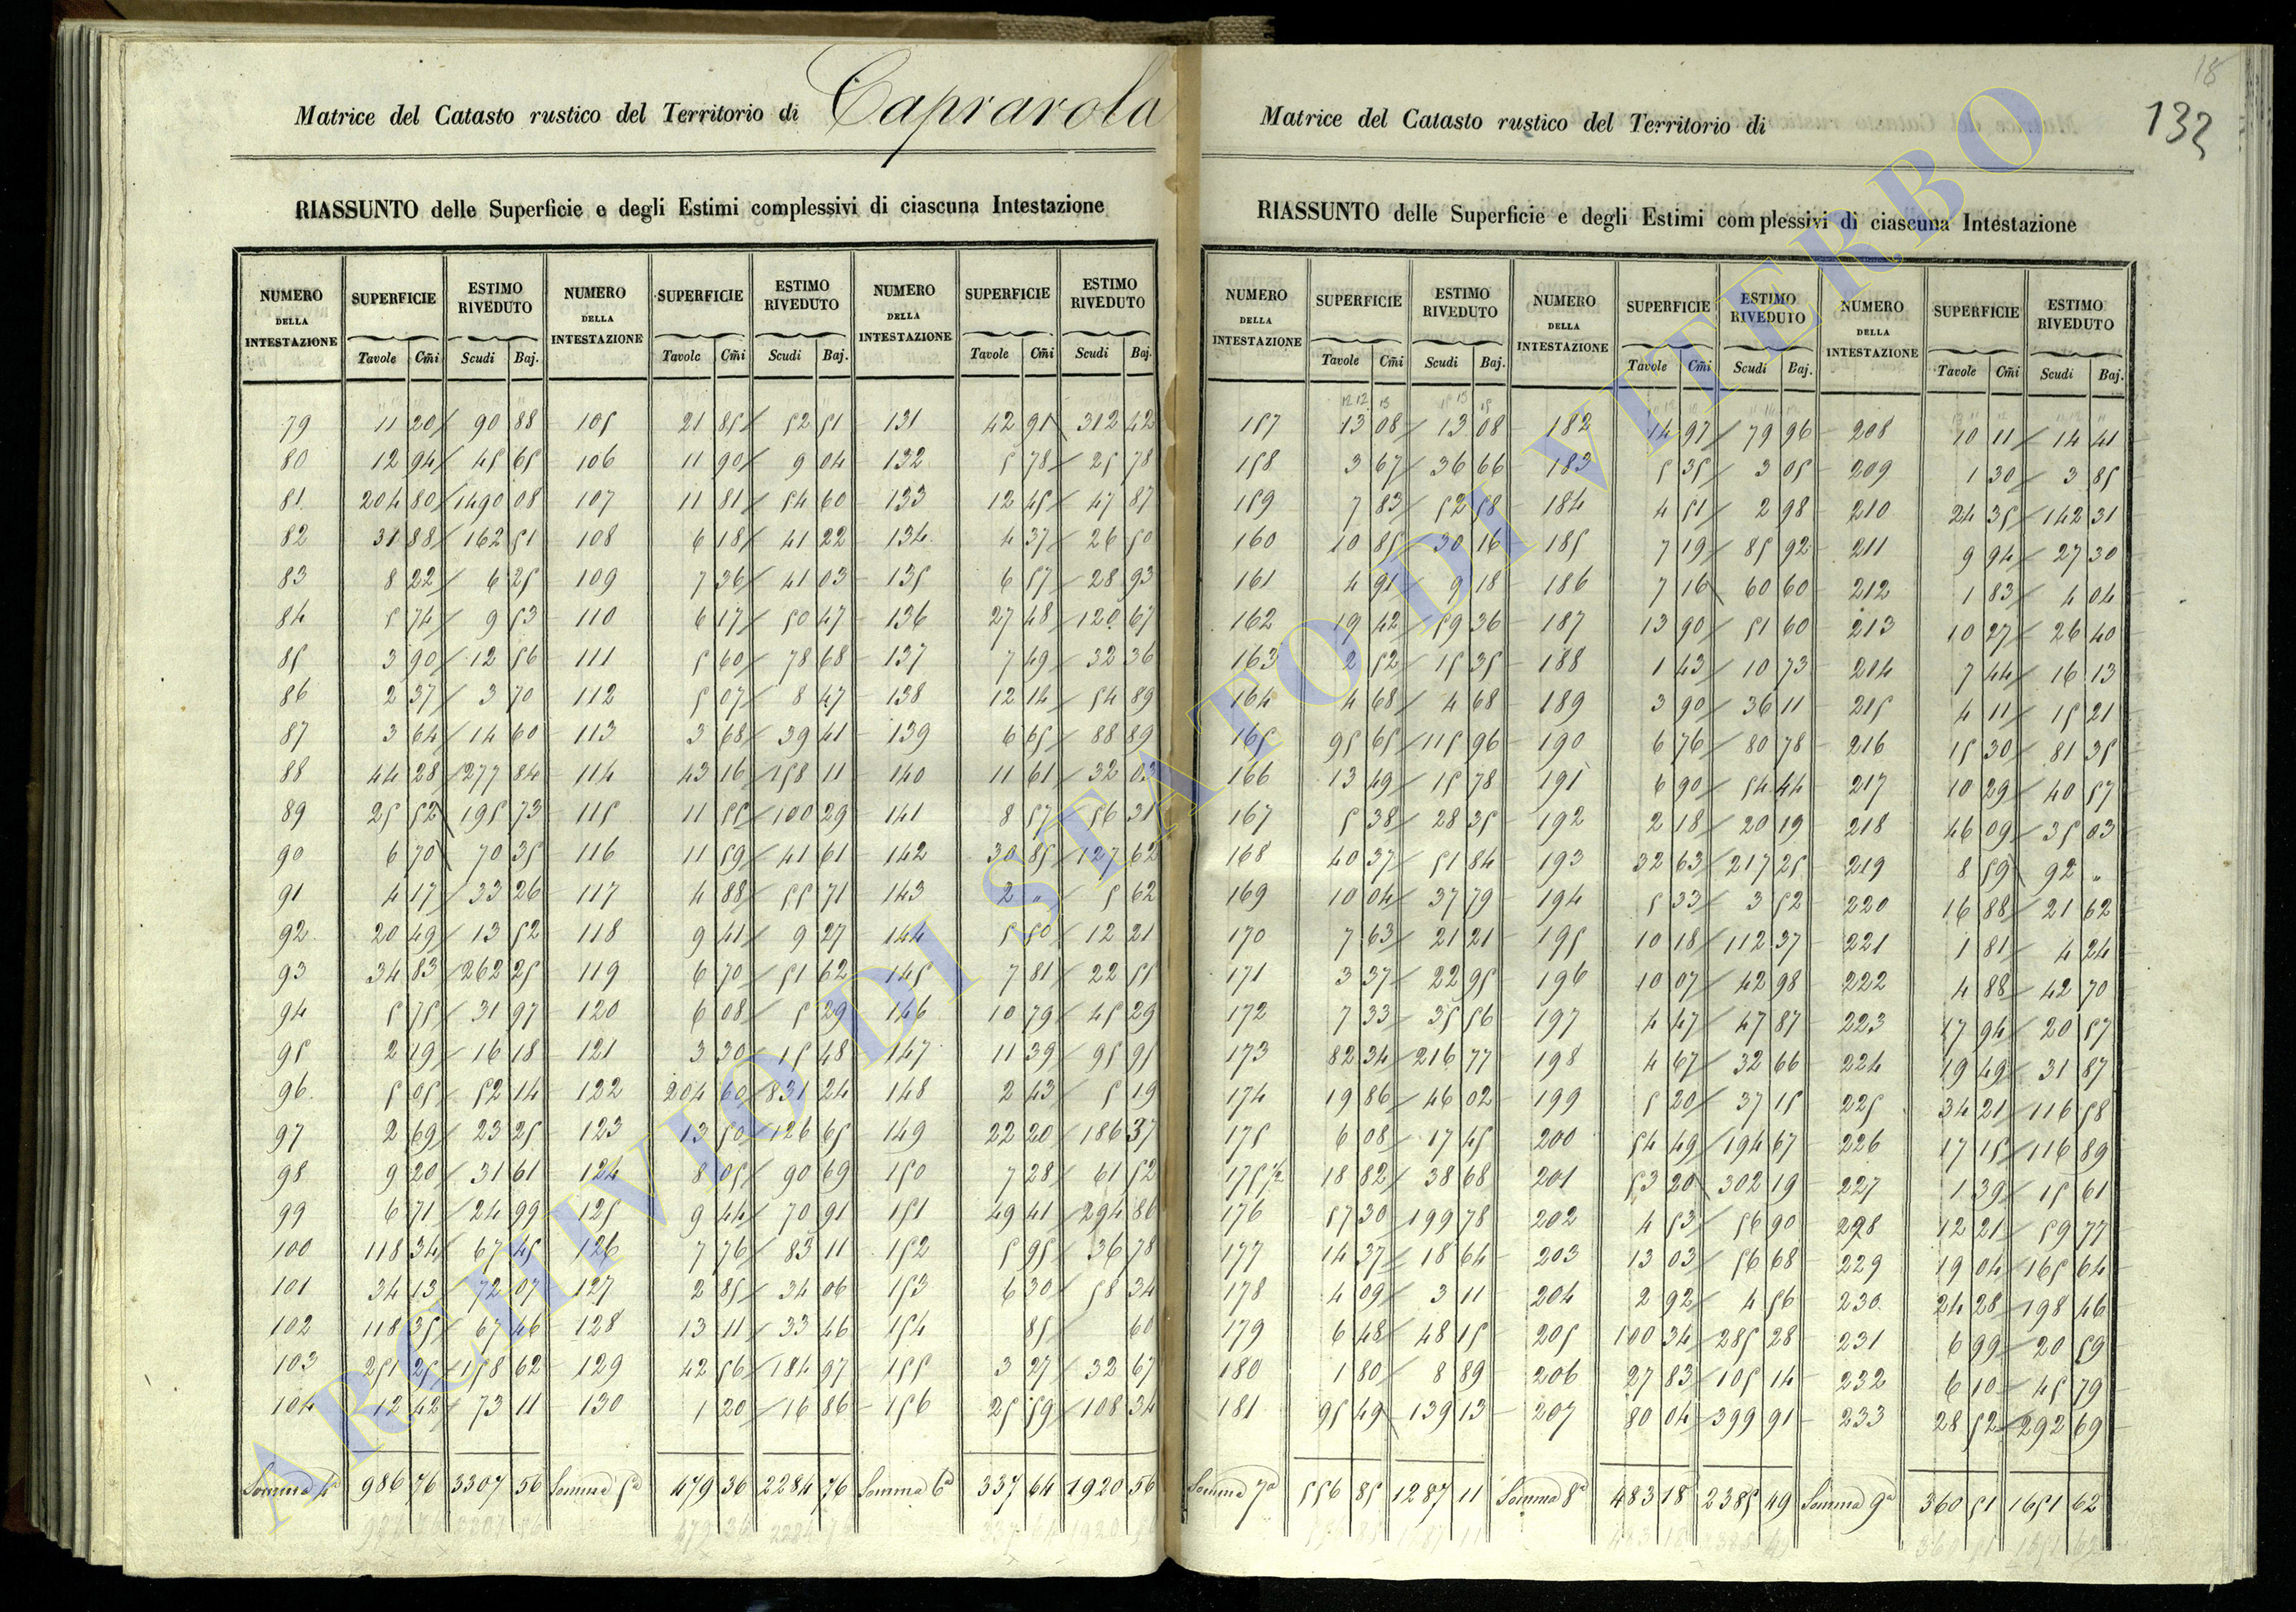 Matrice del Catasto rustico del Territorio di Caprarola
RIASSUNTO delle Superficie e degli Estimi complessivi di ciascuna Intestazione
NUMERO DELLA INTESTAZIONE SUPERFICIE ESTIMO RIVEDUTO NUMERO DELLA INTESTAZIONE SUPERFICIE ESTIMO RIVEDUTO NUMERO DELLA INTESTAZIONE SUPERFICIE ESTIMO RIVEDUTO
Tavole Cm̃i Scudi Baj. Tavole Cm̃i Scudi Baj. Tavole Cm̃i Scudi Baj.
79 11 20 90 88 105 21 85 52 51 131 42 91 312 42
80 12 94 45 65 106 11 90 9 04 132 5 78 25 78
81 204 80 1490 08 107 11 81 54 60 133 12 45 47 87
82 31 88 162 51 108 6 18 41 22 134 4 37 26 50
83 8 22 6 25 109 7 36 41 03 135 6 57 28 93
84 5 74 9 53 110 6 17 50 47 136 27 48 120 67
85 3 90 12 56 111 5 60 78 68 137 7 49 32 36
86 2 37 3 70 112 5 07 8 47 138 12 14 54 89
87 3 64 14 60 113 3 68 39 41 139 6 65 88 89
88 44 28 277 84 114 43 16 158 11 140 11 61 32 03
89 25 52 195 73 115 11 55 100 29 141 8 57 56 31
90 6 70 70 35 116 11 59 41 61 142 30 85 127 62
91 4 17 33 26 117 4 88 55 71 143 2 " 5 62
92 20 49 13 52 118 9 41 9 27 144 5 50 12 21
93 34 83 262 25 119 6 70 51 62 145 7 81 22 55
94 5 75 31 97 120 6 08 5 29 146 10 79 45 29
95 2 19 16 18 121 3 30 15 48 147 11 39 95 95
96 5 05 52 14 122 204 60 831 24 148 2 43 5 19
97 2 69 23 25 123 13 50 126 65 149 22 20 186 37
98 9 20 31 61 124 8 05 90 69 150 7 28 61 52
99 6 71 24 99 125 9 44 70 91 151 49 41 294 86
100 118 34 67 45 126 7 76 83 11 152 5 95 36 78
101 34 13 72 07 127 2 85 34 06 153 6 30 58 34
102 118 35 67 46 128 13 11 33 46 154 85 60
103 251 25 158 62 129 42 56 184 97 155 3 27 32 67
104 12 42 73 11 130 1 20 16 86 156 25 59 108 34
Somma 4a 986 76 3307 56 Somma 5a 479 36 2284 76 Somma 6a 337 64 1920 56
18
132
Matrice del Catasto rustico del Territorio di
RIASSUNTO delle Superficie e degli Estimi complessivi di ciascuna Intestazione
NUMERO DELLA INTESTAZIONE SUPERFICIE ESTIMO RIVEDUTO NUMERO DELLA INTESTAZIONE SUPERFICIE ESTIMO RIVEDUTO NUMERO DELLA INTESTAZIONE SUPERFICIE ESTIMO RIVEDUTO
Tavole Cm̃i Scudi Baj. Tavole Cm̃i Scudi Baj. Tavole Cm̃i Scudi Baj.
157 13 08 13 08 182 14 97 79 96 208 10 11 14 41
158 3 67 36 66 183 5 35 3 05 209 1 30 3 85
159 7 83 52 58 184 4 51 2 98 210 24 35 142 31
160 10 85 30 16 185 7 19 85 92 211 9 94 27 30
161 4 91 9 18 186 7 16 60 60 212 1 83 4 04
162 19 42 59 36 187 13 90 51 60 213 10 27 26 40
163 2 52 15 35 188 1 43 10 73 214 7 44 16 13
164 4 68 4 68 189 3 90 36 11 215 4 11 15 21
165 95 65 115 96 190 6 76 80 78 216 15 30 81 35
166 13 49 15 78 191 6 90 54 44 217 10 29 40 57
167 5 38 28 35 192 2 18 20 19 218 46 09 35 03
168 40 37 51 84 193 32 63 217 25 219 8 59 92 "
169 10 04 37 79 194 5 33 3 52 220 16 88 21 62
170 7 63 21 21 195 10 18 112 37 221 1 81 4 24
171 3 37 22 95 196 10 07 42 98 222 4 88 42 70
172 7 33 35 56 197 4 47 47 87 223 17 94 20 57
173 82 34 216 77 198 4 67 32 66 224 19 49 31 87
174 19 86 46 02 199 5 20 37 15 225 34 21 116 58
175 6 08 17 45 200 54 49 194 67 226 17 15 116 89
175 1/2 18 82 38 68 201 53 20 302 19 227 1 39 15 61
176 57 30 199 78 202 4 53 56 90 228 12 21 59 77
177 14 37 18 64 203 13 03 56 68 229 19 04 165 64
178 4 09 3 11 204 2 92 4 56 230 24 28 198 46
179 6 48 48 15 205 100 34 285 28 231 6 99 20 59
180 1 80 8 89 206 27 83 105 14 232 6 10 45 79
181 95 49 139 13 207 80 04 399 91 233 28 52 292 69
Somma 7a 556 85 1287 11 Somma 8a 483 18 2385 49 Somma 9a 360 51 1651 62
ARCHIVIO DI STATO DI VITERBO